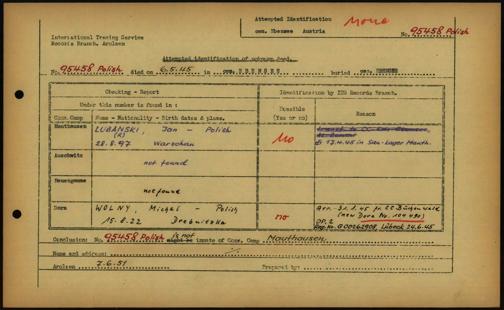 Attempted Identification
com. Ebensee Austria
None
No. 95458 Polish
International Tracing Service
Records Branch, Arolsen
Attempted identification of unknown dead.
No. 95458 Polish died on 6.5.45 in com. EBENSEE buried com. EBENSEE
Checking - Report
Identification by ITS Records Branch.
Under this number is found in :
Possible (Yes or no)
Reason
Conc. Camp
Name - Nationality - Birth dates & place.
Mauthausen
LUBANSKI, Jan - Polish
(R)
28.8.97 Warschau
No
d. 17.4.45 in San.-Lager Mauth.
Auschwitz
not found
Neuengamme
not found
Dora
WOLNY, Michal - Polish
15.8.22
no
arr. 31.1.45 fr. CC Buchenwald
(new Dora No. 104 490)
DP. 2
Reg. No. G00262908, Lübeck 24.6.45
Conclusion: No. 95458 Polish is not
might be inmate of Conc. Camp Mauthausen
Name and address:
Arolsen 7.6.51 Prepared by: